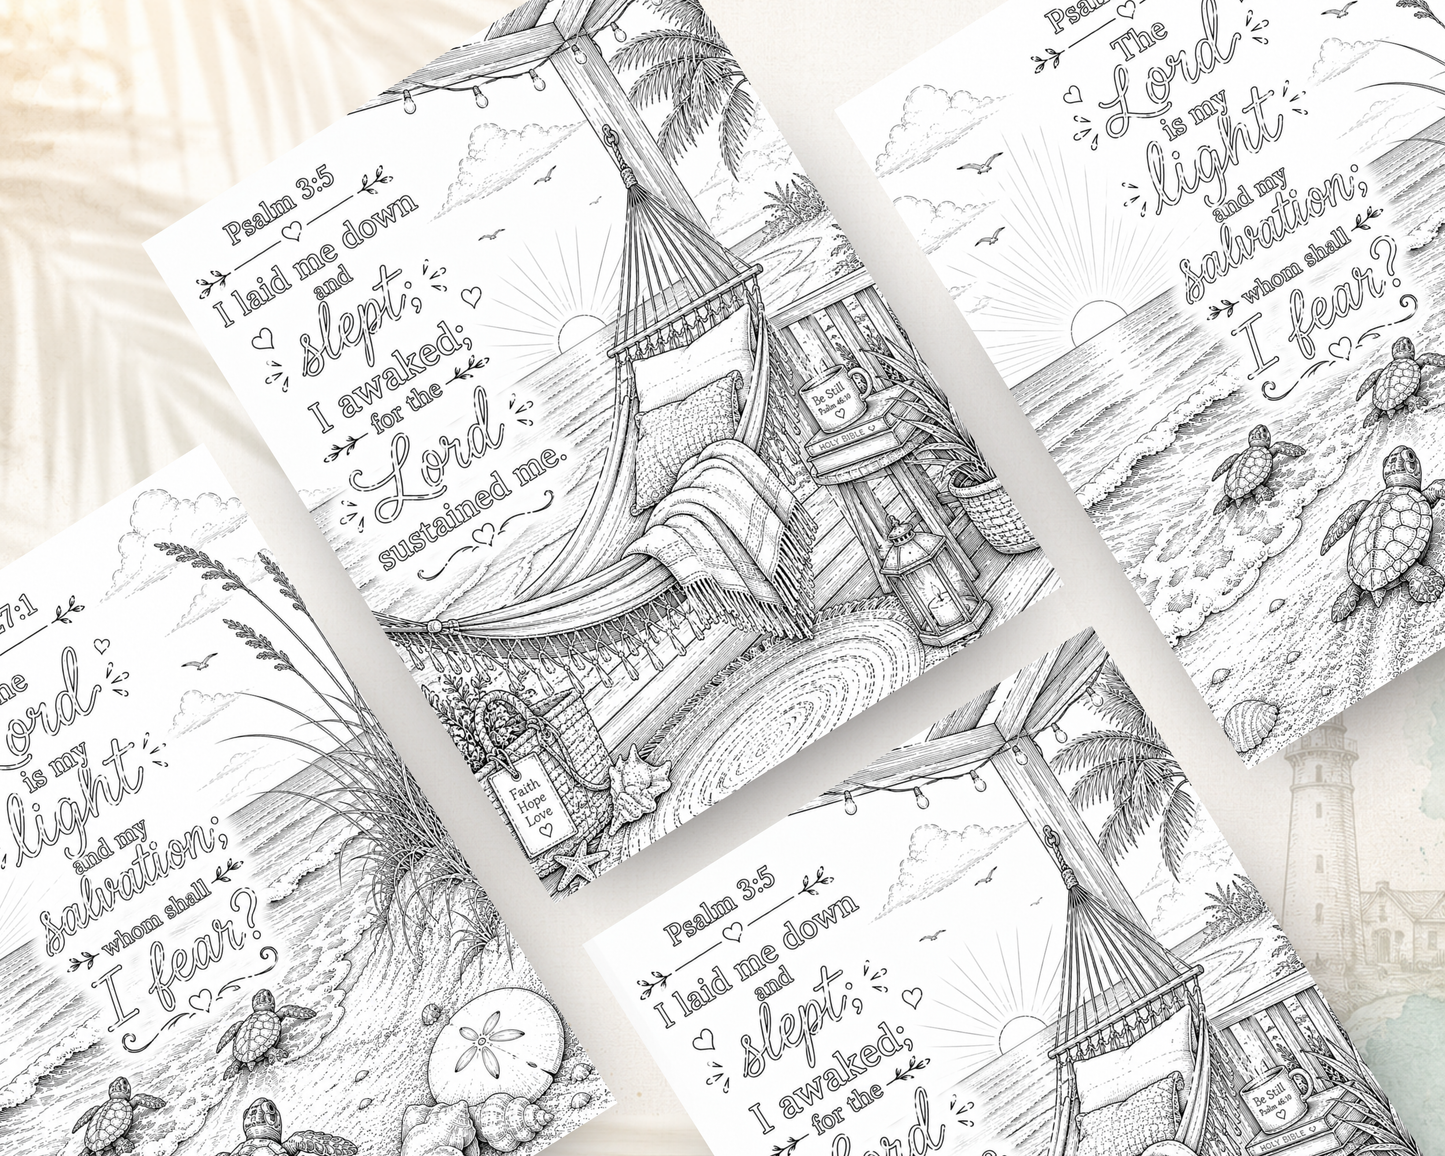 Psalm 3:5
I laid me down
and
slept;
I awaked;
for the
Lord
sustained me.
Be Still
Psalm 46:10
HOLY BIBLE
Faith
Hope
Love
The
Lord
is my
light
and my
salvation;
whom shall
I fear?
7:1
Lord
is my
light
and my
salvation;
whom shall
I fear?
Psalm 3:5
I laid me down
and
slept;
I awaked;
for the
Lord
Be Still
Psalm 46:10
HOLY BIBLE